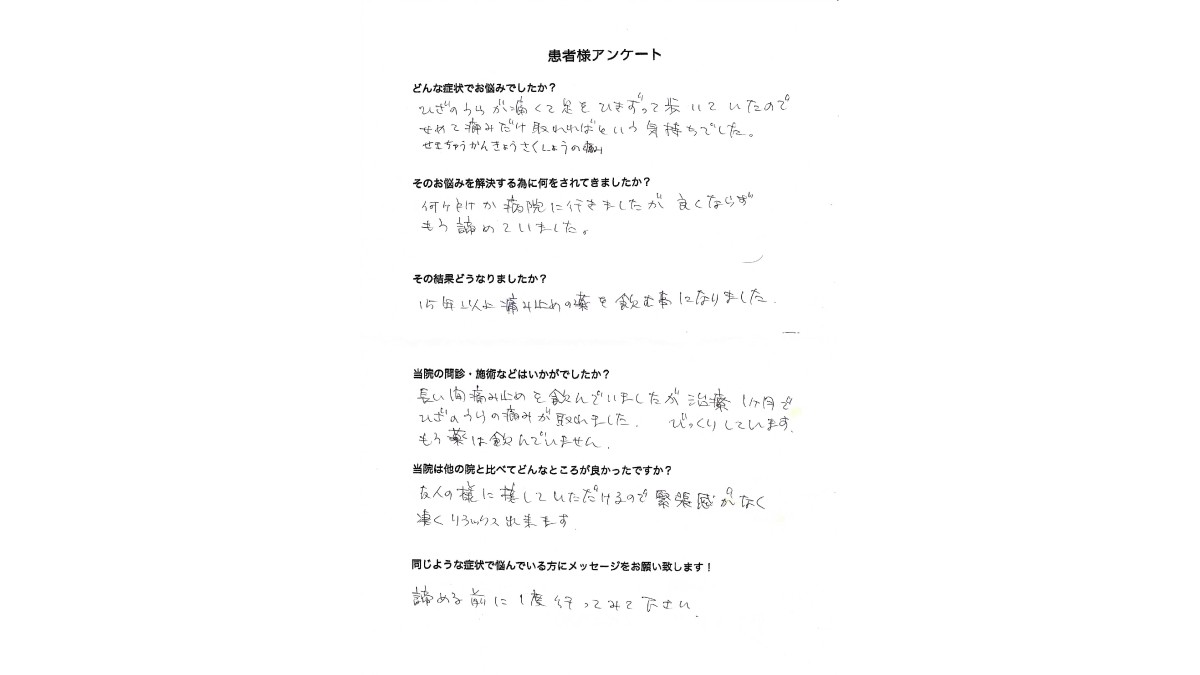 患者様アンケート
どんな症状でお悩みでしたか？
ひざのうらが痛くて足をひきずって歩いていたので
せめて痛みだけ取れればという気持ちでした。
せきちゅうかんきょうさくしょうの痛み
そのお悩みを解決する為に何をされてきましたか？
何ヶ所か病院に行きましたが良くならず
もう諦めていました。
その結果どうなりましたか？
15年以上痛み止めの薬を飲む事になりました.
当院の問診・施術などはいかがでしたか？
長い間痛み止めを飲んでいましたが治療1ヶ月で
ひざのうらの痛みが取れました. びっくりしています.
もう薬は飲んでいません.
当院は他の院と比べてどんなところが良かったですか？
友人の様に接していただけるので緊張感がなく
凄くリラックス出来ます.
同じような症状で悩んでいる方にメッセージをお願い致します！
諦める前に1度行ってみて下さい.